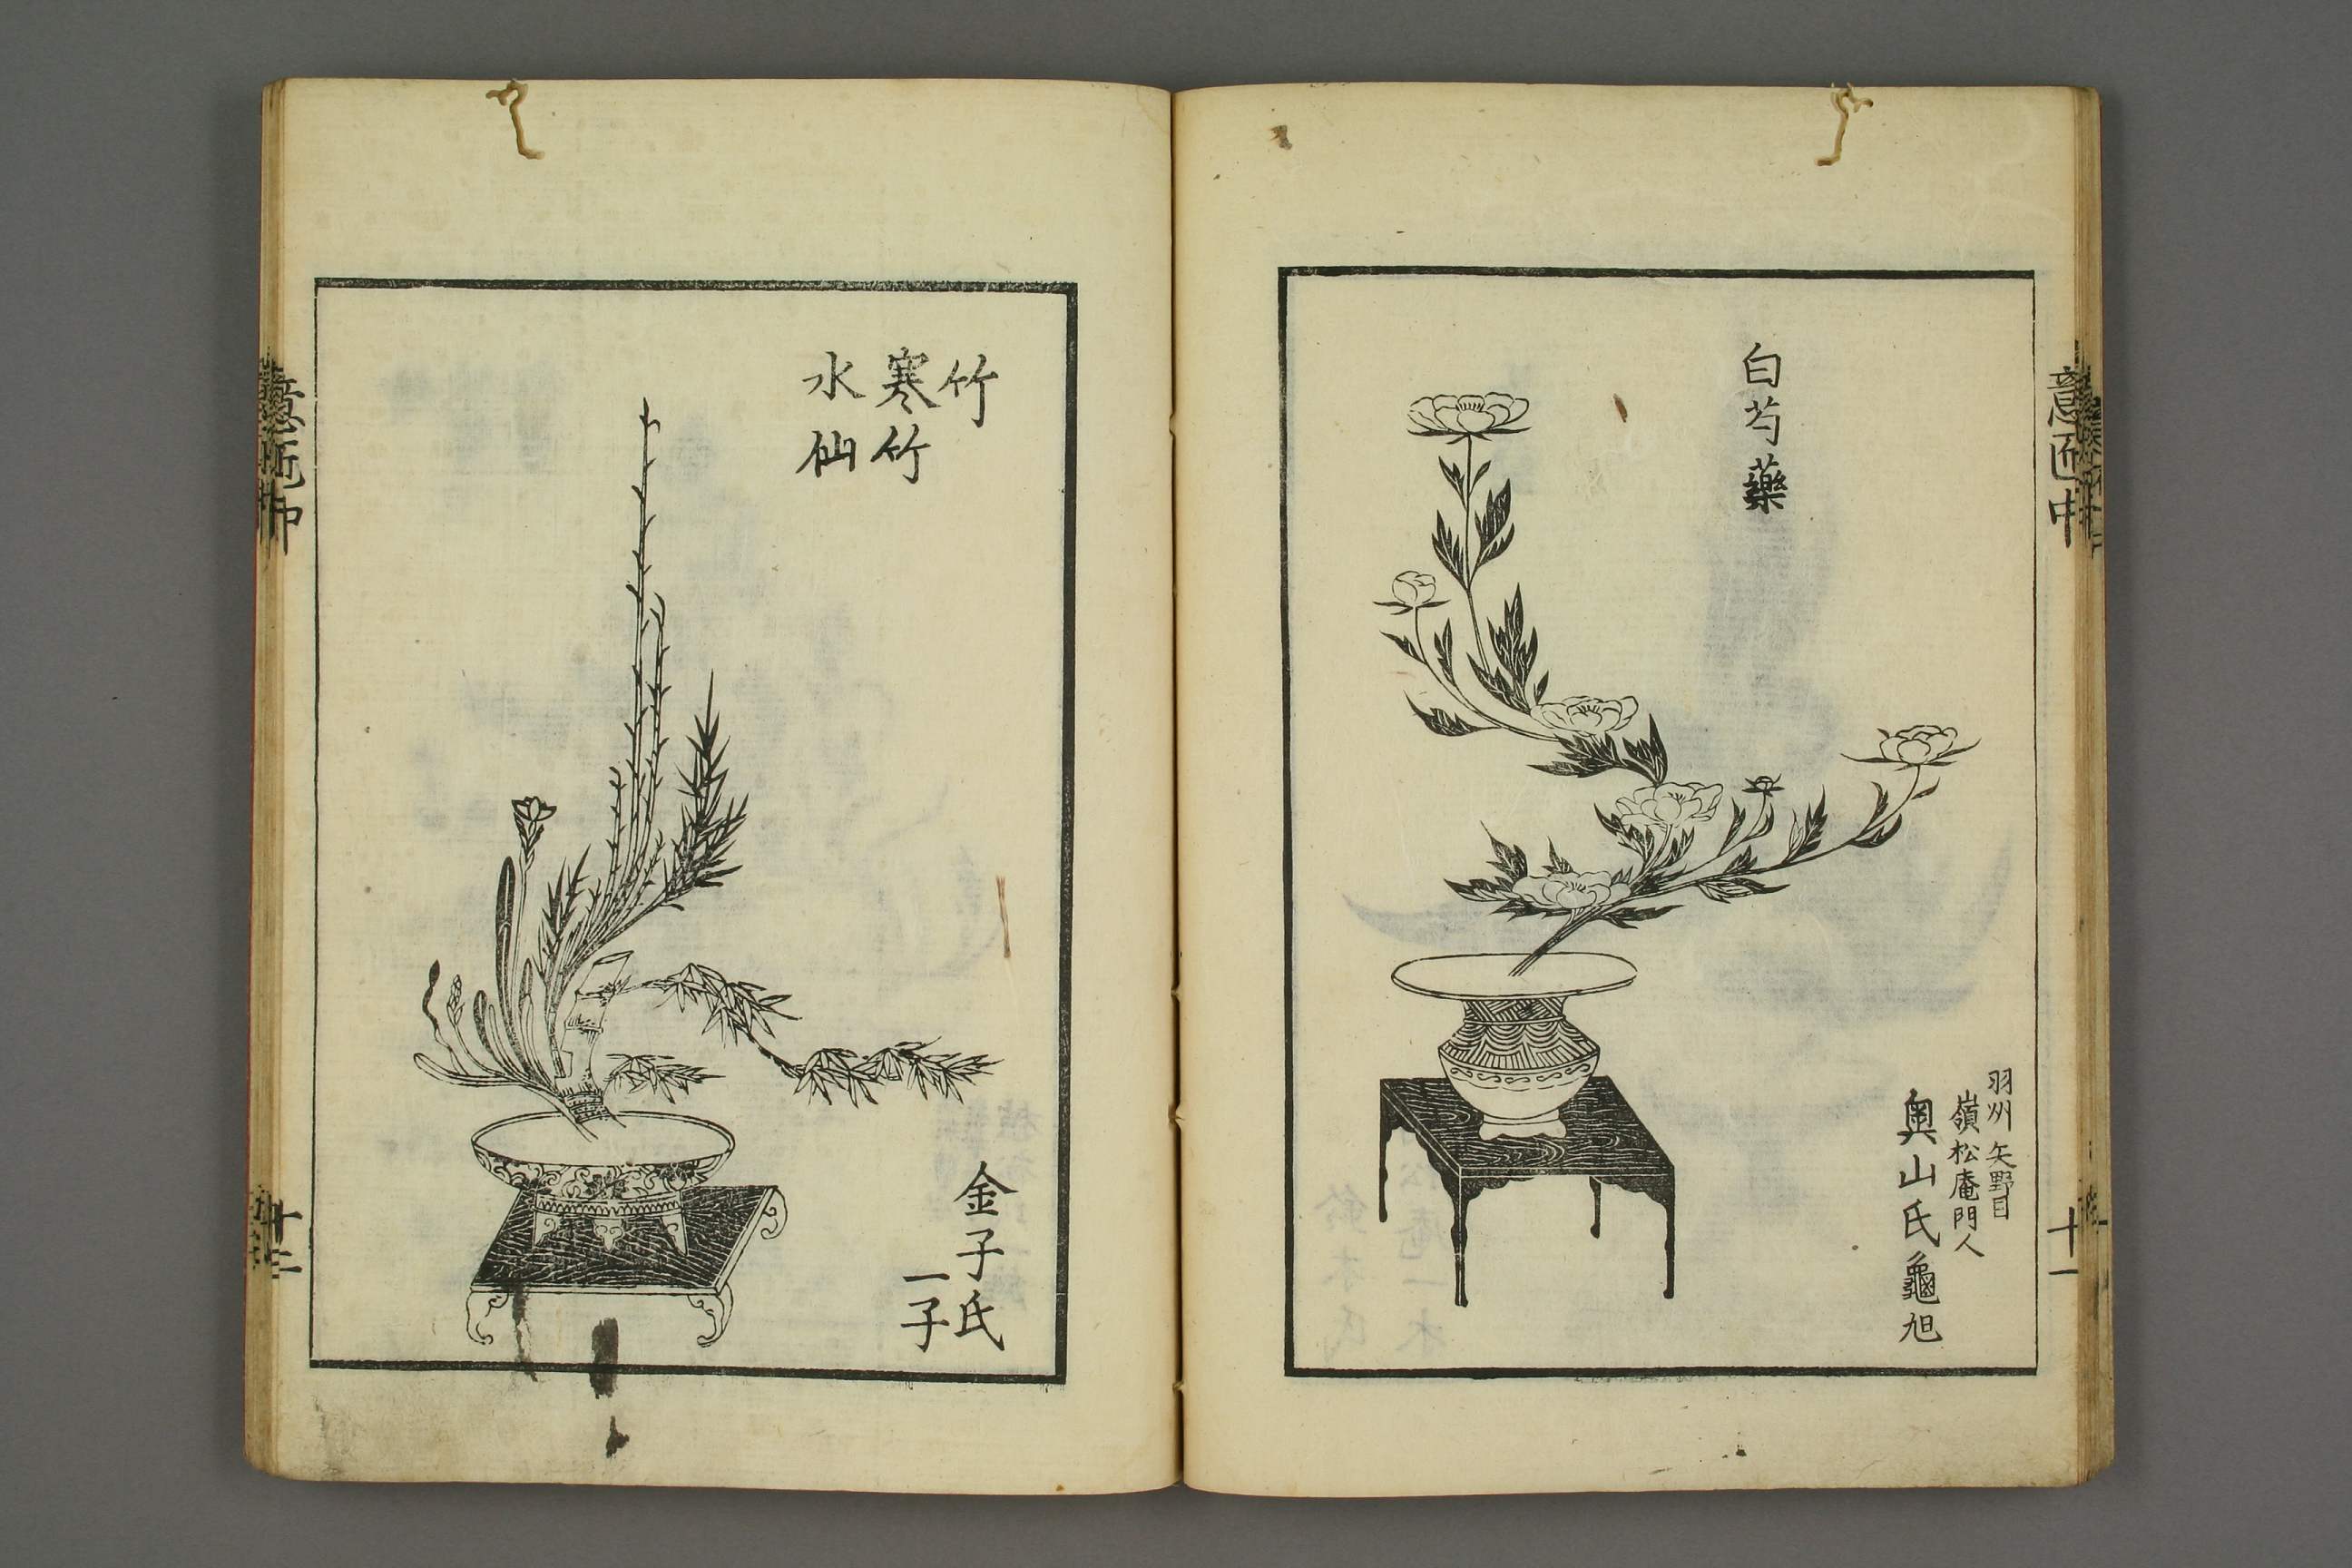 意匠中
十一
白芍藥
羽州矢野目
嶺松庵門人
奥山氏龜旭
竹
寒竹
水仙
金子氏
一子
十二